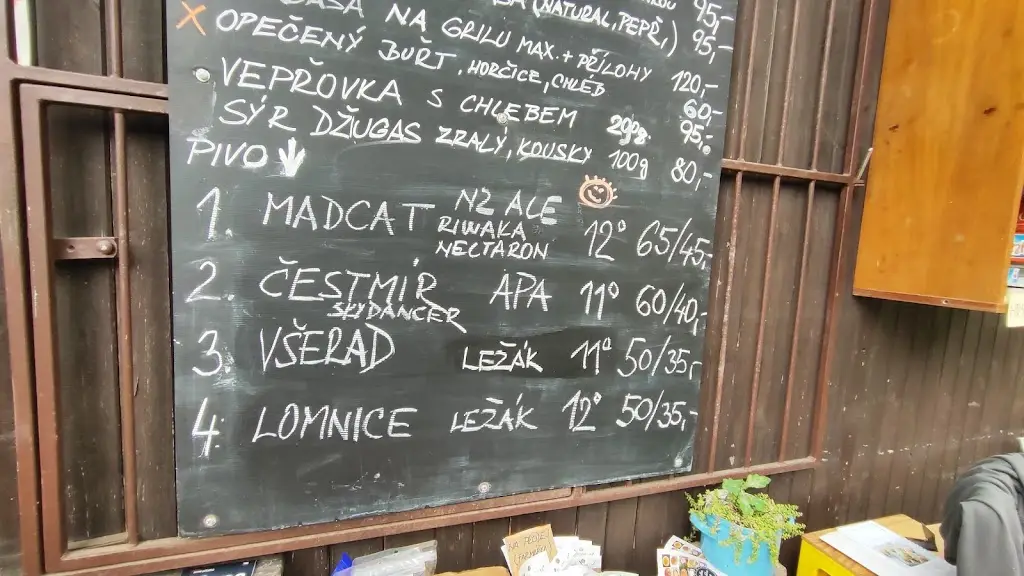 NA GRILU MAX. + PŘÍLOHY
(NATURAL, PEPŘ,) 95,-
95,-
X OPEČENÝ BUŘT, HORČICE, CHLÉB 120,-
VEPŘOVKA S CHLEBEM 60,-
95,-
SÝR DŽIUGAS ZRALÝ, KOUSKY 100g 80,-
PIVO
1. MADCAT NZ ALE RIWAKA NECTARON 12° 65/45,-
2. ČESTMÍR SLYDANCER APA 11° 60/40,-
3. VŠERAD LEŽÁK 11° 50/35,-
4. LOMNICE LEŽÁK 12° 50/35,-